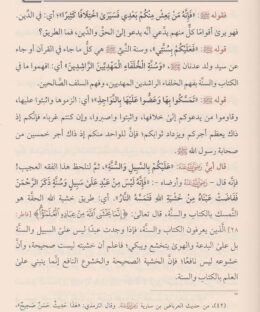 فقوله ﷺ: «فَإِنَّهُ مَنْ يَعِشْ مِنْكُمْ بَعْدِي فَسَيَرَى اخْتِلَافًا كَثِيرًا»؛ أي: في الدين،
فهو يرى أقوامًا كلٌّ منهم يدَّعي أنَّه يدعو إلى الحقِّ والهُدى، فما الطريق؟
قوله ﷺ: «فَعَلَيْكُمْ بِسُنَّتِي»، وسنة النَّبيِّ ﷺ هي كلُّ ما جاء في القرآن أو جاء
عن سيد ولد عدنان ﷺ، «وَسُنَّةِ الْخُلَفَاءِ الْمَهْدِيِّينَ الرَّاشِدِينَ»؛ أي: افهموا ما في
الكتاب والسنَّة بفهم الخلفاء الراشدين المهديين، وفهم السلف الصالحين.
قوله ﷺ: «تَمَسَّكُوا بِهَا وَعَضُّوا عَلَيْهَا بِالنَّوَاجِذِ»؛ أي: الزموا واثبتوا عليها،
وقاوموا من يدعوكم إلى خلافها، واثبتوا واصبروا، وإن كنتم غرباء فإنَّكم إذ
ذاك يعظم أجركم ويزداد ثوابكم؛ فإنَّ للواحد منكم إذ ذاك أجر خمسين من
صحابة رسول الله ﷺ.
قال أبيٌّ: «عَلَيْكُمْ بِالسَّبِيلِ وَالسُّنَّةِ»، ثمَّ لنلحظ هذا الفقه العجيب!
فإنَّه قال: «فَإِنَّهُ لَيْسَ مِنْ عَبْدٍ عَلَى سَبِيلٍ وَسُنَّةٍ ذَكَرَ الرَّحْمَنَ
فَفَاضَتْ عَيْنَاهُ مِنْ خَشْيَةِ اللَّهِ فَتَمَسَّهُ النَّارُ»، أي: طريق خشية الله الحقَّة هو
التمسك بالكتاب والسنة، قال تعالى: ﴿إِنَّمَا يَخْشَى اللَّهَ مِنْ عِبَادِهِ الْعُلَمَاءُ﴾ [فاطر:
٢٨] الذين يعرفون الكتاب والسنَّة، فإذا وجدت عبدًا ليس على الكتاب والسنَّة
بل على البدعة والهوى يتخشع ويبكي؛ فاعلم أنَّ خشيته ليست صحيحة، وأنَّ
خشوعه ليس نافعًا؛ فإنَّ الخشية الصحيحة والخشوع النافع إنَّما ينبني على
العلم بالكتاب والسنة.
(٤٢)، من حديث العرباض بن سارية، وقال الترمذي: «هَذَا حَدِيثٌ حَسَنٌ صَحِيحٌ».